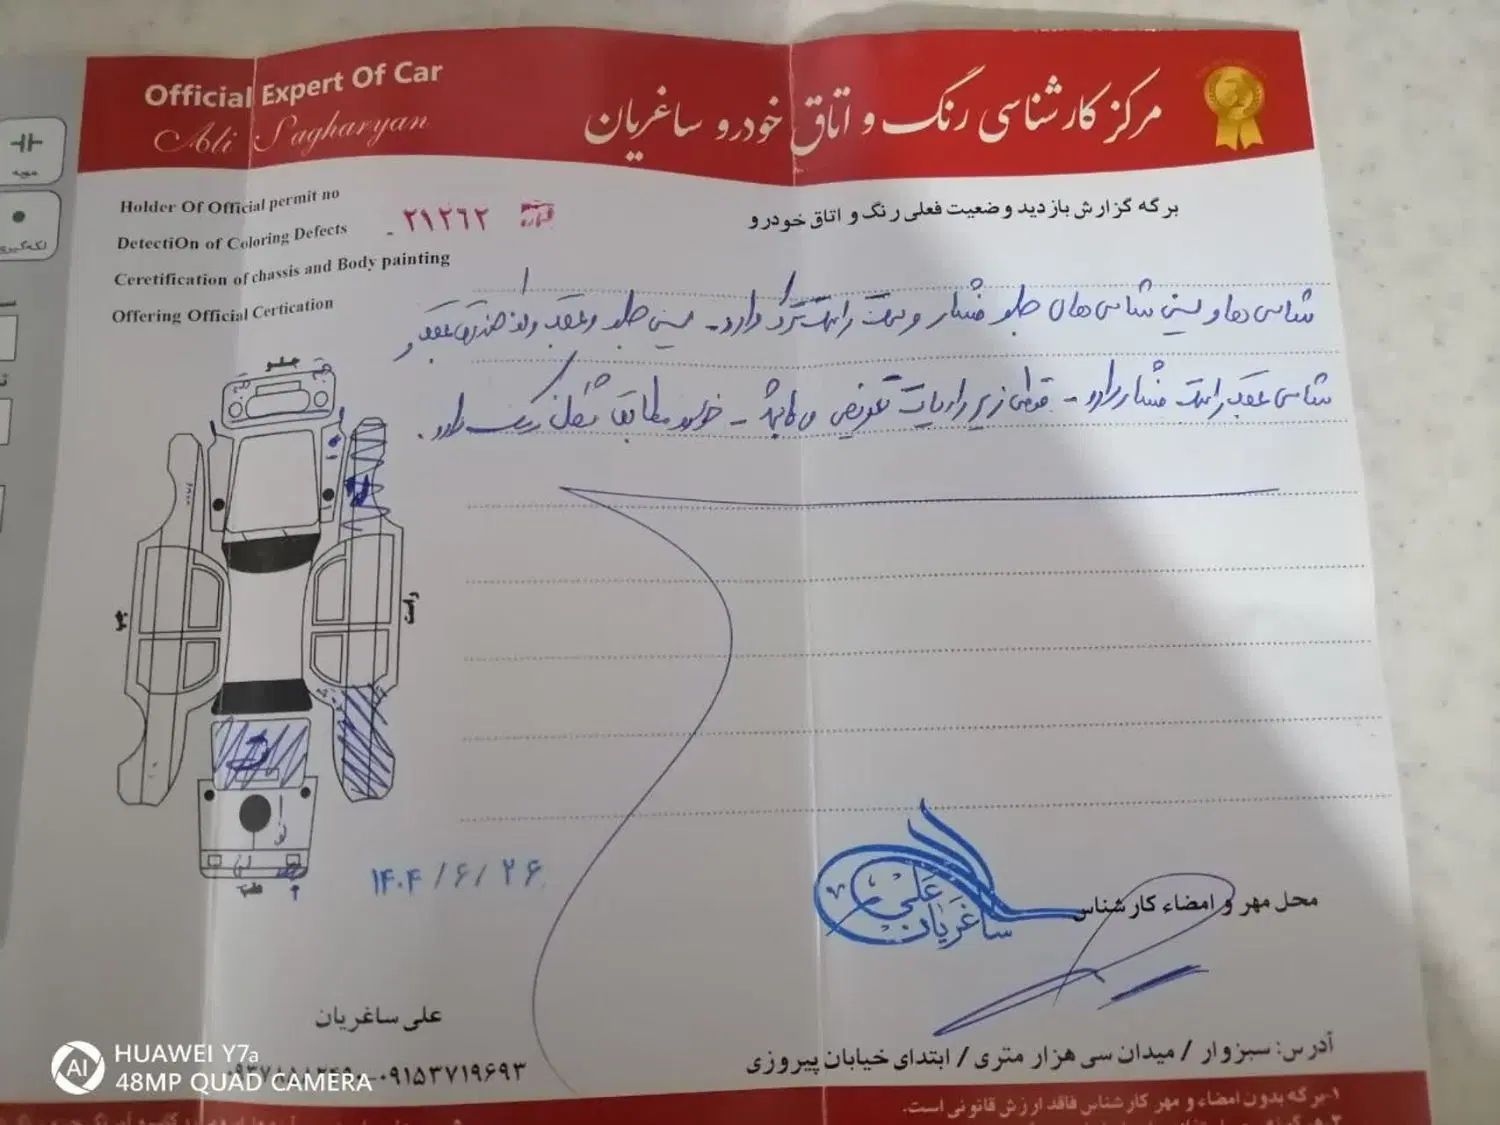 Official Expert Of Car
Ali Sagharyan
مرکز کارشناسی رنگ و اتاق خودرو ساغریان
Holder Of Official permit no
DetectiOn of Coloring Defects
Ceretification of chassis and Body painting
Offering Official Certication
شماره ۲۱۲۶۲
برگه گزارش بازدید وضعیت فعلی رنگ و اتاق خودرو
شاسی ها و سینی شاسی های جلو فشار و سمت راست ترک دارد - سینی جلو و عقب و لبه صندوق عقب و
شاسی عقب راست فشار دارد - قوطی زیر رادیات تعویض می باشد - خودرو مطابق شکل رنگ دارد.
جلو
چپ
راست
عقب
۱۴۰۴/۶/۲۶
علی ساغریان
محل مهر و امضاء کارشناس
علی ساغریان
۰۹۱۵۳۷۱۹۶۹۳
آدرس: سبزوار / میدان سی هزار متری / ابتدای خیابان پیروزی
۱-برگه بدون امضاء و مهر کارشناس فاقد ارزش قانونی است.
مویه
لکه‌گیری
AI
HUAWEI Y7a
48MP QUAD CAMERA